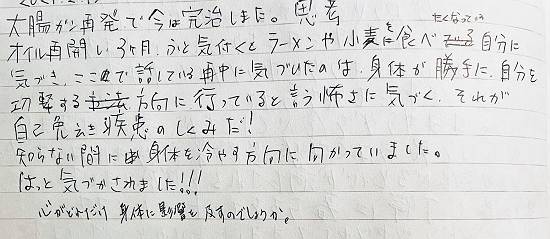 大腸がん再発で今は完治しました。思考
オイル再開し3ヶ月、ふと気付くとラーメンや小麦を食べたくなっている自分に
気づき、ここで話している中に気づいたのは、身体が勝手に、自分を
攻撃する方向に行っていると言う怖さに気づく、それが
自己免疫疾患のしくみだ!
知らない間に身体を冷やす方向に向かっていました。
はっと気づかされました!!!
心がどれだけ身体に影響を及すのでしょうか。